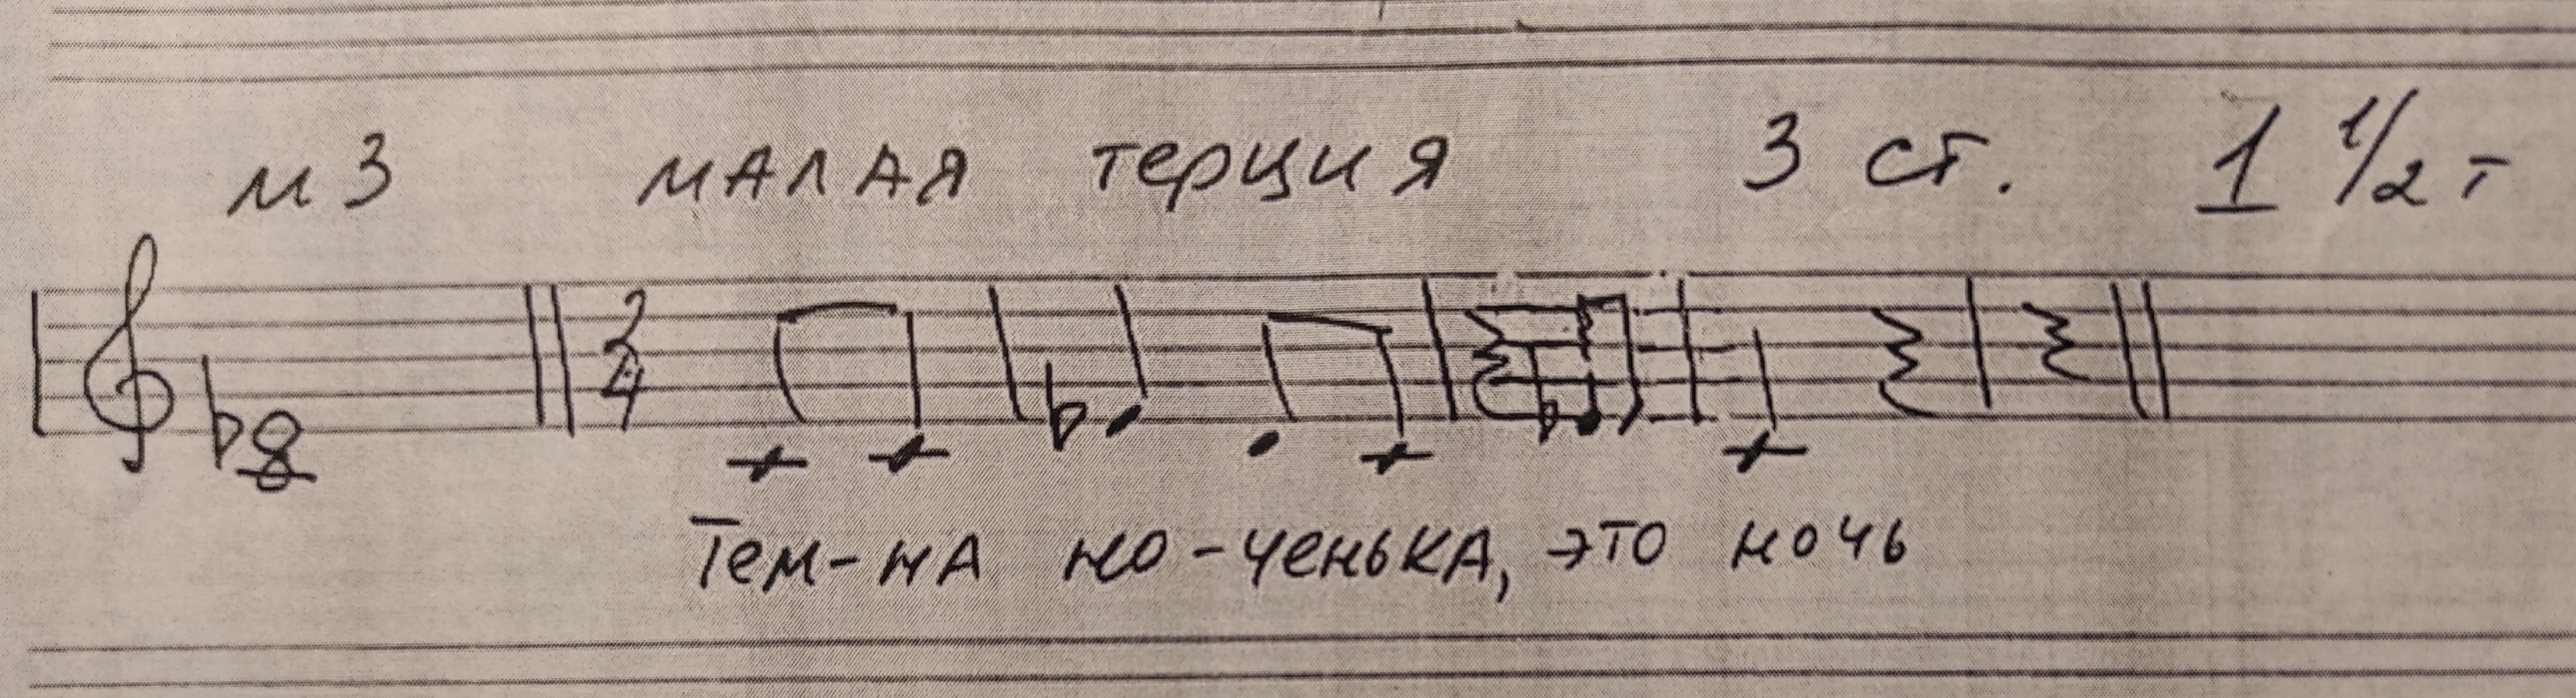 м3 малая терция 3 ст. 1 1/2 т
2
4
Тем-на но-ченька, это ночь